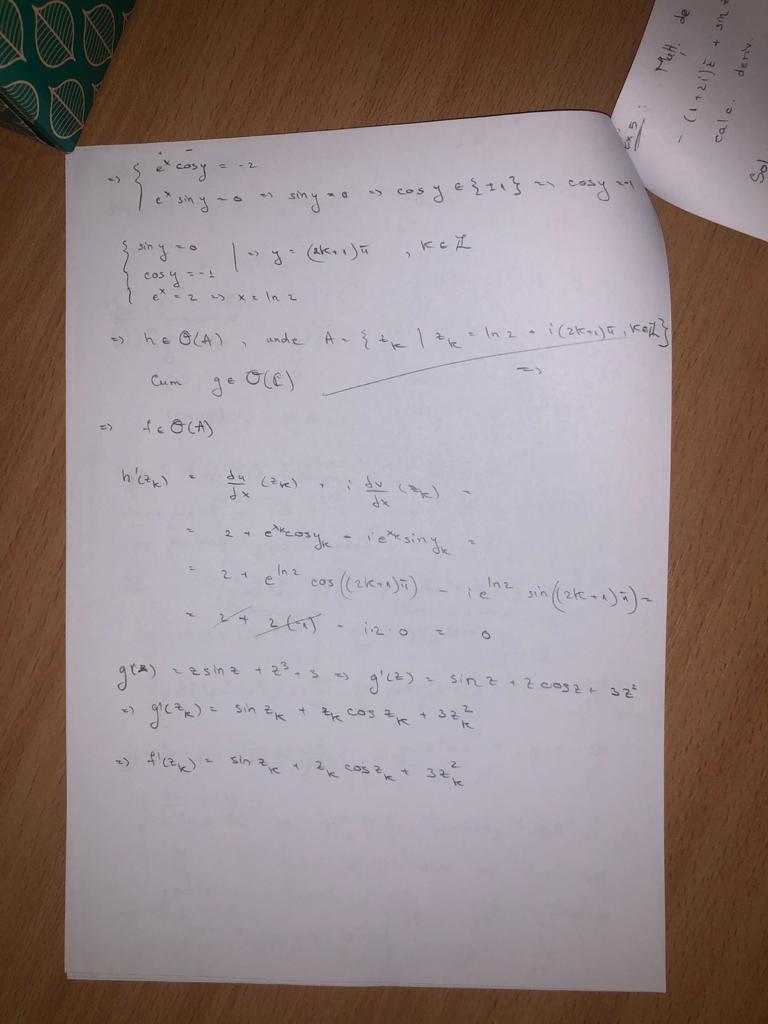 => { e^x cos y = -2
e^x sin y = 0 => sin y = 0 => cos y ∈ {±1} => cos y = -1
{ sin y = 0
cos y = -1 | => y = (2k+1)π , k ∈ ℤ
e^x = 2 => x = ln 2
=> h ∈ O(A) , unde A = { z_k | z_k = ln 2 + i(2k+1)π, k∈ℤ}
Cum g ∈ O(ℂ) =>
=> f ∈ O(A)
h'(z_k) = du/dx (z_k) + i dv/dx (z_k) =
= 2 + e^{x_k} cos y_k - i e^{x_k} sin y_k =
= 2 + e^{ln 2} cos((2k+1)π) - i e^{ln 2} sin((2k+1)π) =
= 2 + 2(-1) - i·2·0 = 0
g(z) = z sin z + z^3 + 3 => g'(z) = sin z + z cos z + 3z^2
=> g'(z_k) = sin z_k + z_k cos z_k + 3z_k^2
=> f'(z_k) = sin z_k + z_k cos z_k + 3z_k^2
ex 5 : Mult. de
- (1+2i)z̄ + sin z
calc. deriv.
Sol